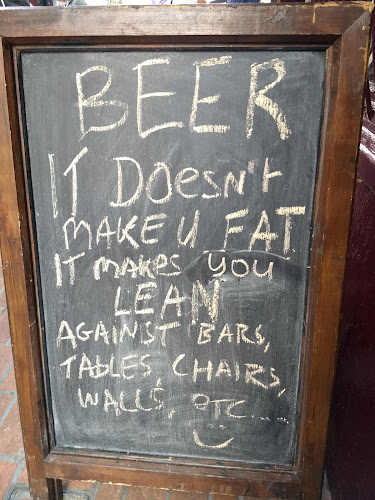 BEER
IT DOESN't
MAKE U FAT
IT MAKES YOU
LEAN
AGAINST BARS,
TABLES, CHAIRS,
WALLS, ETC.....